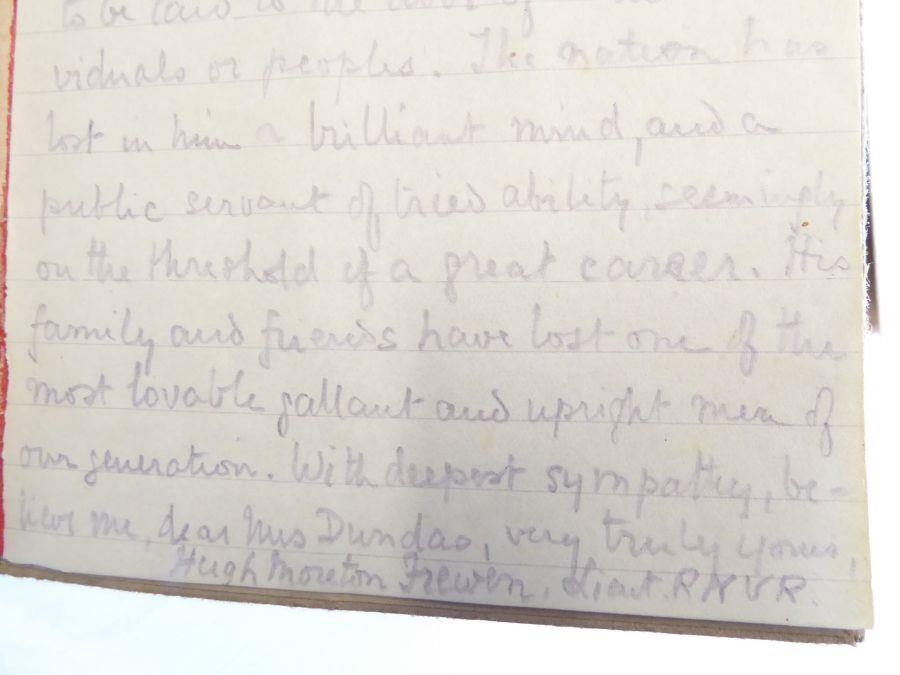 to be laid to the door of
viduals or peoples. The nation has
lost in him a brilliant mind, and a
public servant of tried ability, seemingly
on the threshold of a great career. His
family and friends have lost one of the
most lovable gallant and upright men of
our generation. With deepest sympathy, be-
lieve me, dear Mrs Dundas, very truly yours,
Hugh Moreton Frewen, Lieut. RNVR.